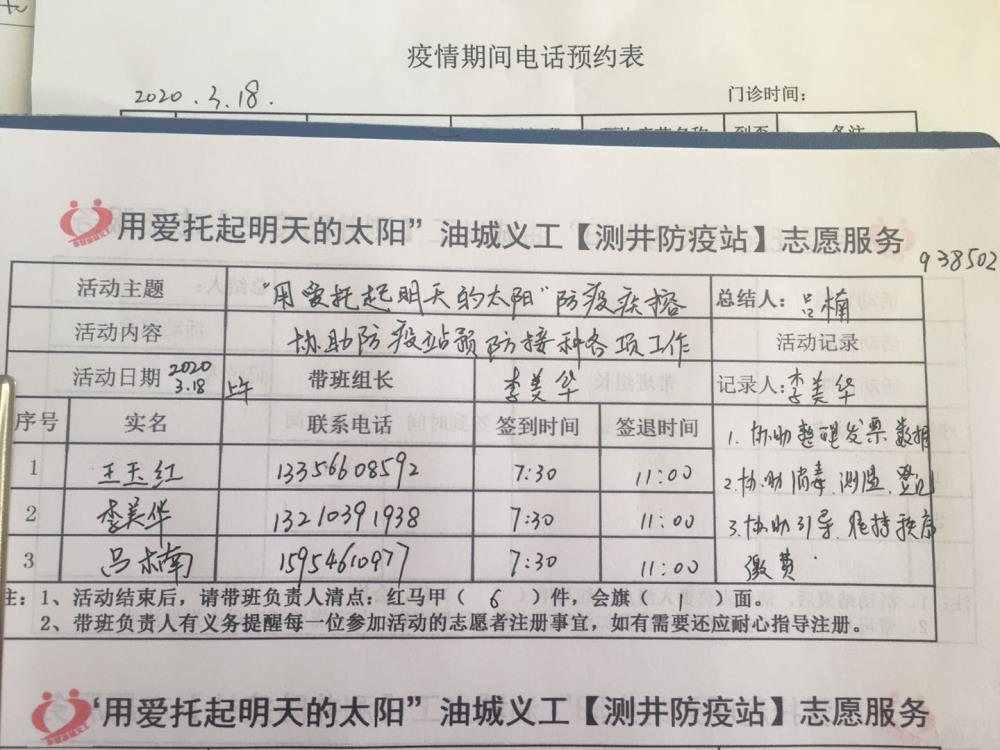 疫情期间电话预约表
2020.3.18.
门诊时间:
备注
用爱托起明天的太阳”油城义工【测井防疫站】志愿服务
938502
活动主题 “用爱托起明天的太阳”防疫疾榕 总结人: 吕楠
活动内容 协助防疫站预防接种各项工作 活动记录
活动日期 2020 3.18 上午 带班组长 李美华 记录人: 李美华
序号 实名 联系电话 签到时间 签退时间 1. 协助整理发票数据
1 王玉红 13356608592 7:30 11:00 2. 协助消毒.测温.登记
2 李美华 13210391938 7:30 11:00 3. 协助引导.维持秩序
3 吕楠 15954610977 7:30 11:00 缴费.
注: 1、活动结束后，请带班负责人清点: 红马甲（ 6 ）件，会旗（ 1 ）面。
2、带班负责人有义务提醒每一位参加活动的志愿者注册事宜，如有需要还应耐心指导注册。
“用爱托起明天的太阳”油城义工【测井防疫站】志愿服务